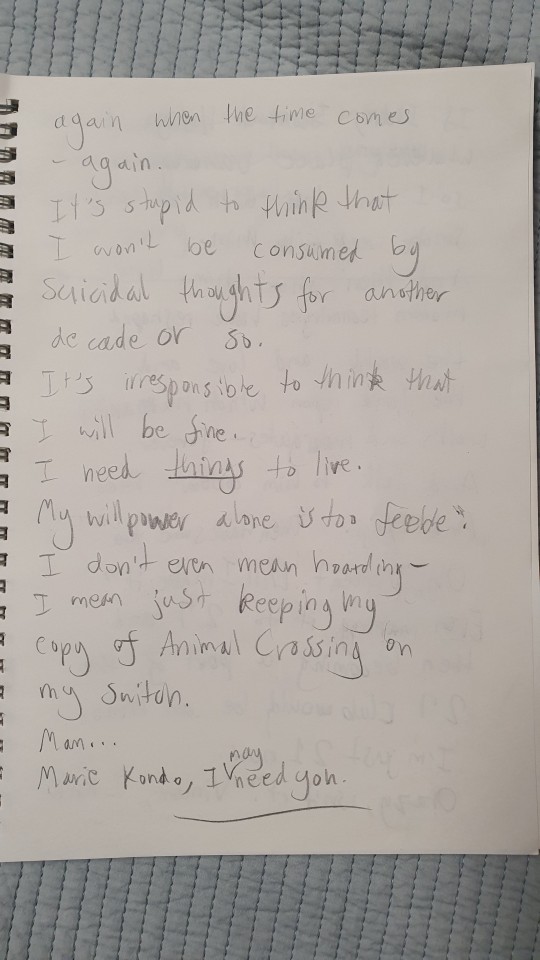 again when the time comes
- again.
It's stupid to think that
I won't be consumed by
suicidal thoughts for another
decade or so.
It's irresponsible to think that
I will be fine.
I need things to live.
My willpower alone is too feeble.
I don't even mean hoarding—
I mean just keeping my
copy of Animal Crossing on
my Switch.
Man...
Marie Kondo, I may need you.